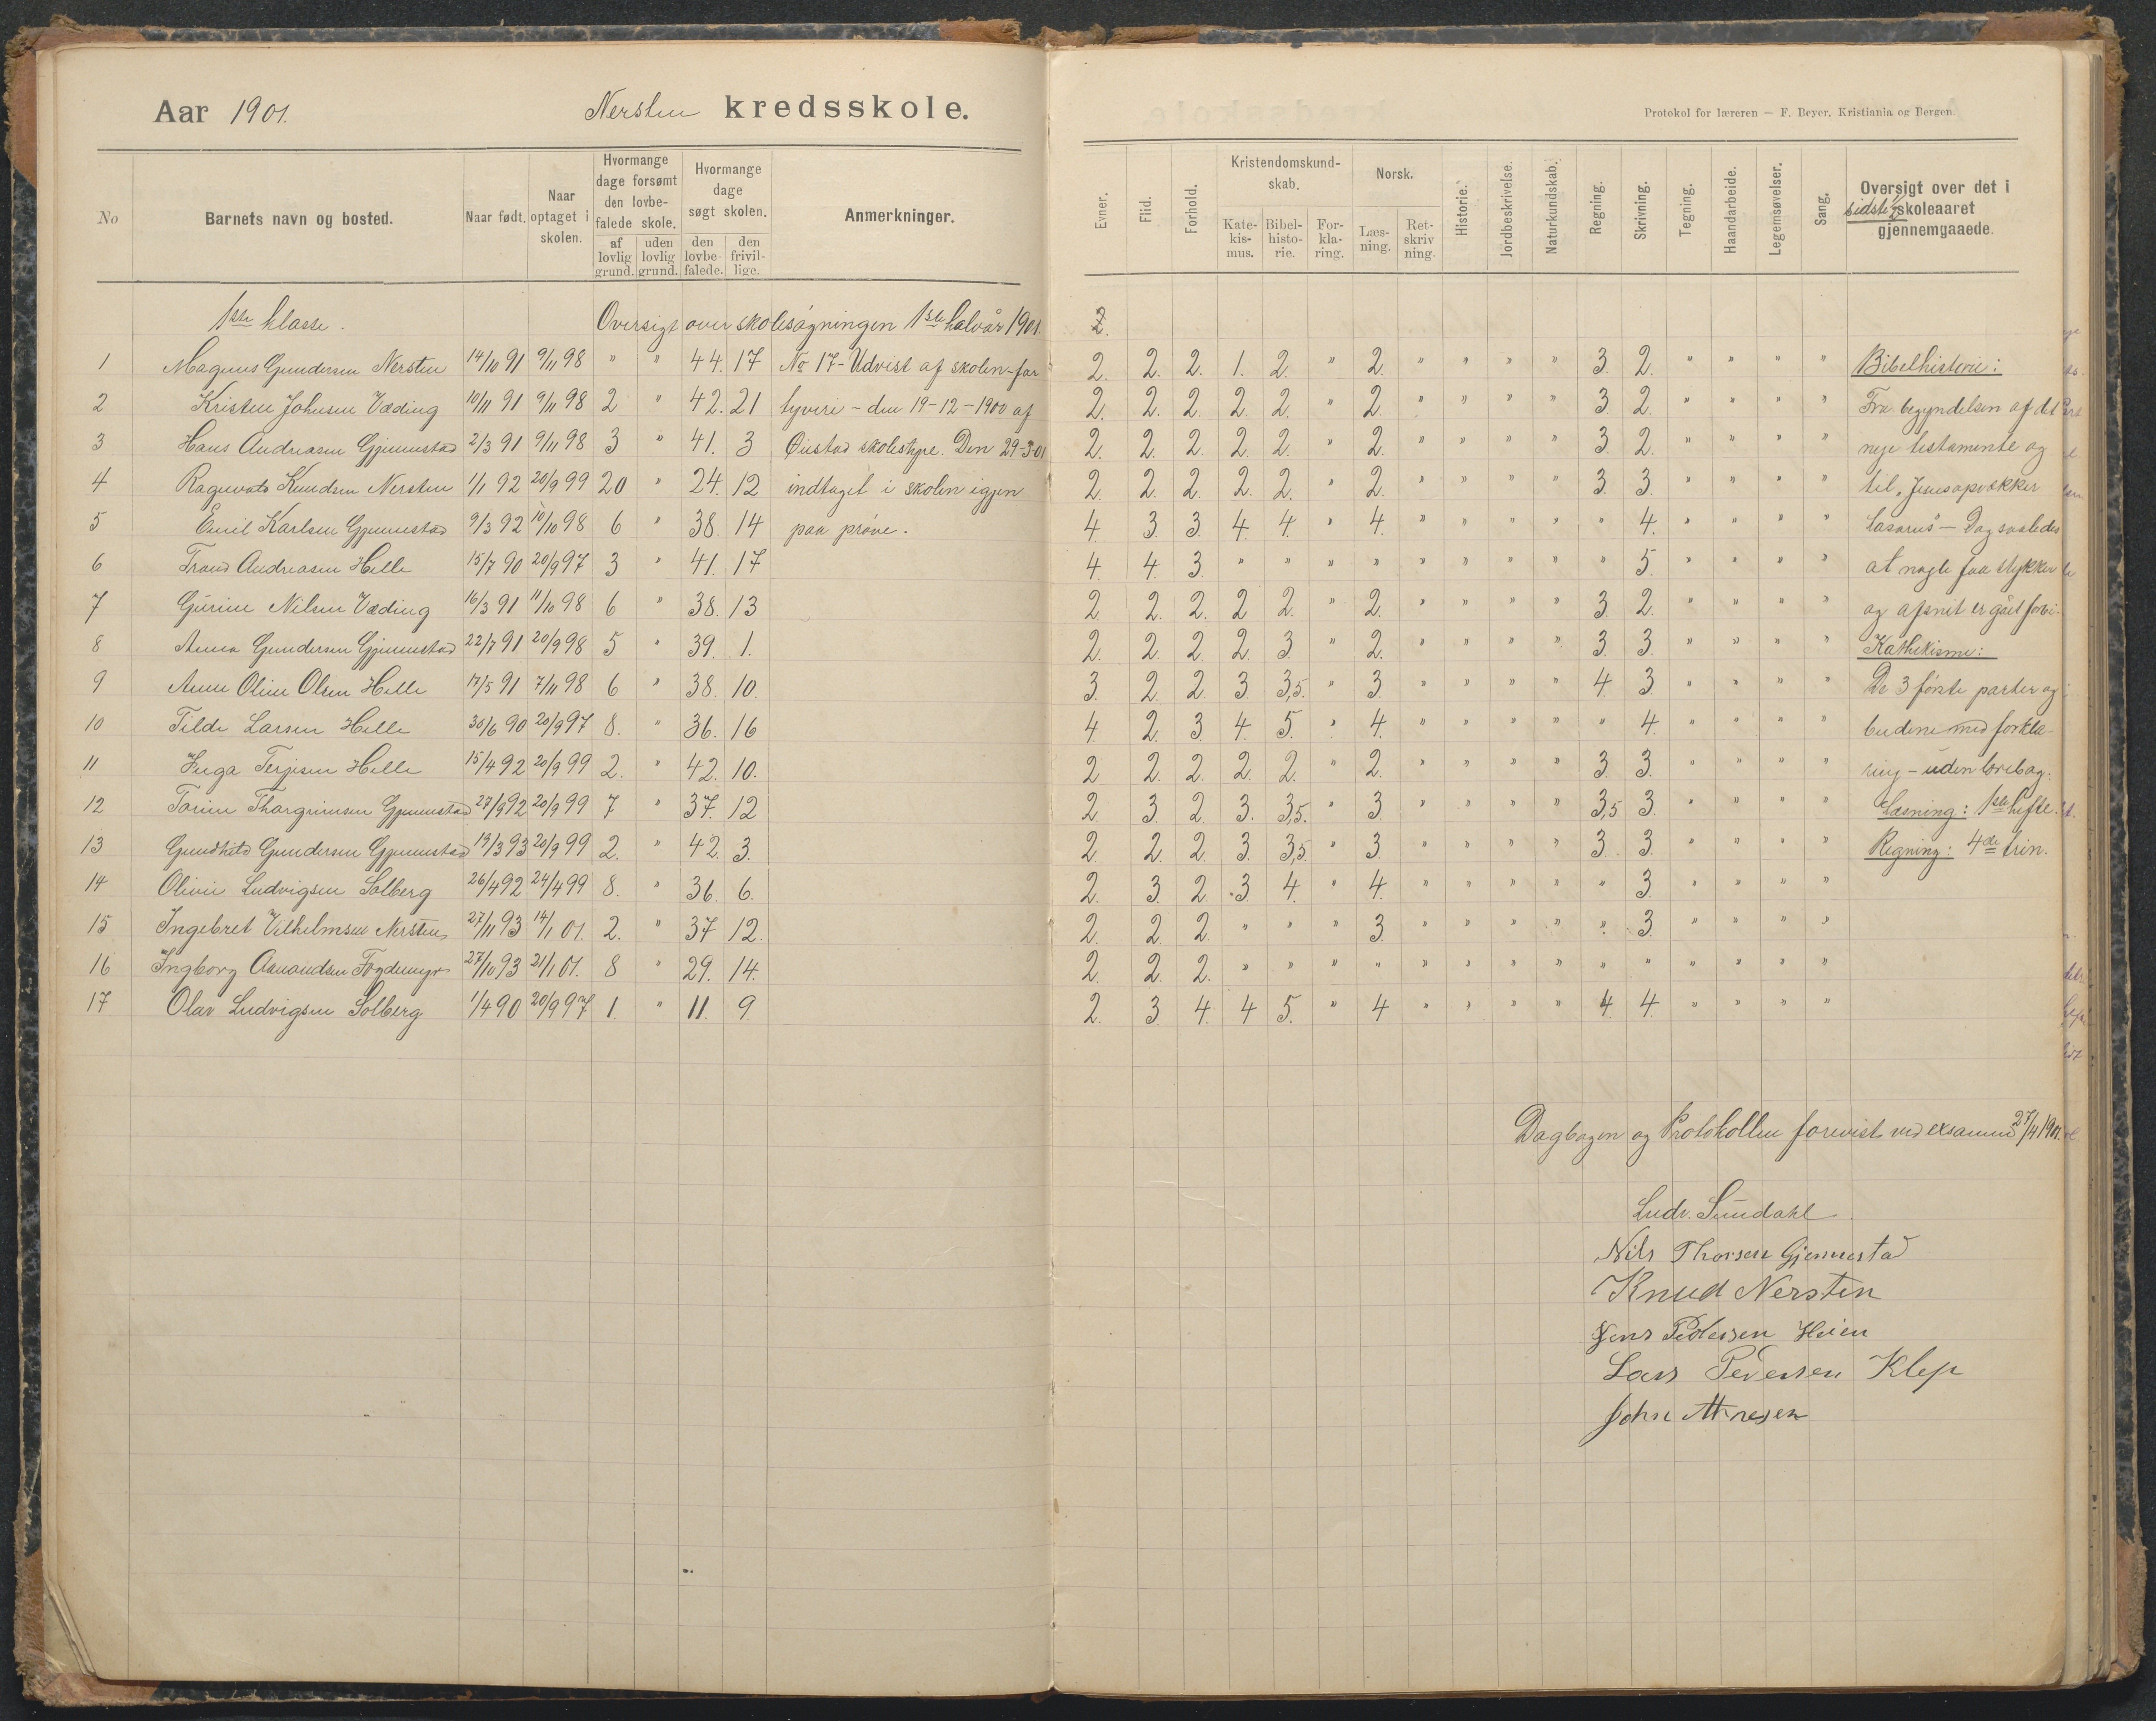 Aar 1901. Nersten kredsskole.
No
Barnets navn og bosted.
Naar født.
Naar optaget i skolen.
Hvormange dage forsømt den lovbefalede skole.
af lovlig grund.
uden lovlig grund.
Hvormange dage søgt skolen.
den lovbefalede.
den frivillige.
Anmerkninger.
1ste klasse. Oversigt over skolesøgningen 1ste halvår 1901.
1 Magnus Gundersen Nersten 14/10 91 9/11 98 " " 44. 17 No 17 - Udvist af skolen - for
2 Kristen Johnsen Væding 10/11 91 9/11 98 2 " 42. 21 tyveri - den 19-12-1900 af
3 Hans Andreasen Gjennestad 2/3 91 9/11 98 3 " 41. 3 Øiestad skolestyre. Den 29-3-01
4 Ragnvald Knudsen Nersten 1/1 92 20/9 99 20 " 24. 12 indtaget i skolen igjen
5 Emil Karlsen Gjennestad 9/3 92 10/10 98 6 " 38. 14 paa prøve.
6 Trond Andreasen Helle 15/7 90 20/9 97 3 " 41. 17
7 Gurine Nilsen Væding 16/3 91 11/10 98 6 " 38. 13
8 Anna Gundersen Gjennestad 22/7 91 20/9 98 5 " 39. 1.
9 Anne Oline Olsen Helle 17/5 91 7/11 98 6 " 38. 10.
10 Tilde Larsen Helle 30/6 90 20/9 97 8. " 36. 16
11 Inga Terjesen Helle 15/4 92 20/9 99 2. " 42. 10.
12 Torine Thorgrimsen Gjennestad 27/9 92 20/9 99 7 " 37. 12
13 Gundhild Gundersen Gjennestad 19/3 93 20/9 99 2. " 42 3.
14 Olivie Ludvigsen Solberg 26/4 92 24/4 99 8. " 36. 6.
15 Ingebret Vilhelmsen Nersten 27/11 93 14/1 01. 2. " 37 12.
16 Ingborg Aanandsen Fogdemyr 27/10 93 21/1 01. 8 " 29. 14.
17 Olav Ludvigsen Solberg 1/4 90 20/9 97 1. " 11. 9.
Protokol for læreren — F. Beyer, Kristiania og Bergen.
Evner.
Flid.
Forhold.
Kristendomskundskab.
Katekismus.
Bibelhistorie.
Forklaring.
Norsk.
Læsning.
Retskrivning.
Historie.
Jordbeskrivelse.
Naturkundskab.
Regning.
Skrivning.
Tegning.
Haandarbeide.
Legemsøvelser.
Sang.
Oversigt over det i
sidste 1/2 skoleaaret
gjennemgaaede.
2.
2. 2. 2. 1. 2. " 2. " " " " 3. 2. " " " " Bibelhistorie:
2. 2. 2. 2. 2. " 2. " " " " 3 2. " " " " Fra begyndelsen af det
2. 2. 2. 2. 2. " 2. " " " " 3 2. " " " " nye testamente og
2. 2. 2. 2. 2. " 2. " " " " 3. 3. " " " " til "Jesus opvækker
4. 3. 3. 4. 4. " 4. " " " " " 4. " " " " Lasarus" — Dog saaledes
4. 4. 3 " " " " " " " " " 5. " " " " at nogle faa stykker
2. 2. 2. 2 2. " 2. " " " " 3 2. " " " " og afsnit er gået forbi.
2. 2. 2. 2. 3. " 2. " " " " 3. 3. " " " " Kathekisme:
3. 2. 2. 3. 3,5. " 3. " " " " 4 3. " " " " De 3 første parter og
4 2. 3. 4. 5. " 4. " " " " " 4. " " " " budene med forkla-
2 2. 2. 2. 2. " 2. " " " " 3 3. " " " " ring - uden lærebog.
2. 3. 2. 3. 3,5. " 3. " " " " 3,5 3. " " " " Læsning: 1ste hefte.
2. 2. 2. 3. 3,5 " 3. " " " " 3. 3. " " " " Regning: 4de trin.
2. 3. 2. 3 4. " 4. " " " " " 3. " " " "
2. 2. 2. " " " 3. " " " " " 3. " " " "
2. 2. 2. " " " " " " " " " " " " " "
2. 3. 4. 4 5. " 4 " " " " 4 4. " " " "
Dagbogen og Protokollen forevist ved examen 27/4 1901.
Ludv. Sundahl.
Nils Thorsen Gjennestad
Knud Nersten
Jens Pedersen Heien
Lars Pedersen Klep
John